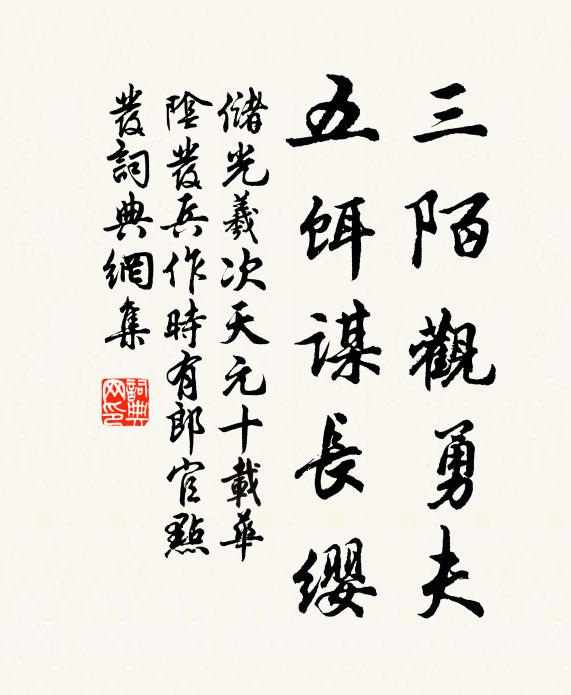 三陌觀勇夫
五餌謀長纓
儲光羲次天元十載華
陰發兵作時有郎官點
發詞典網集
詞典网印